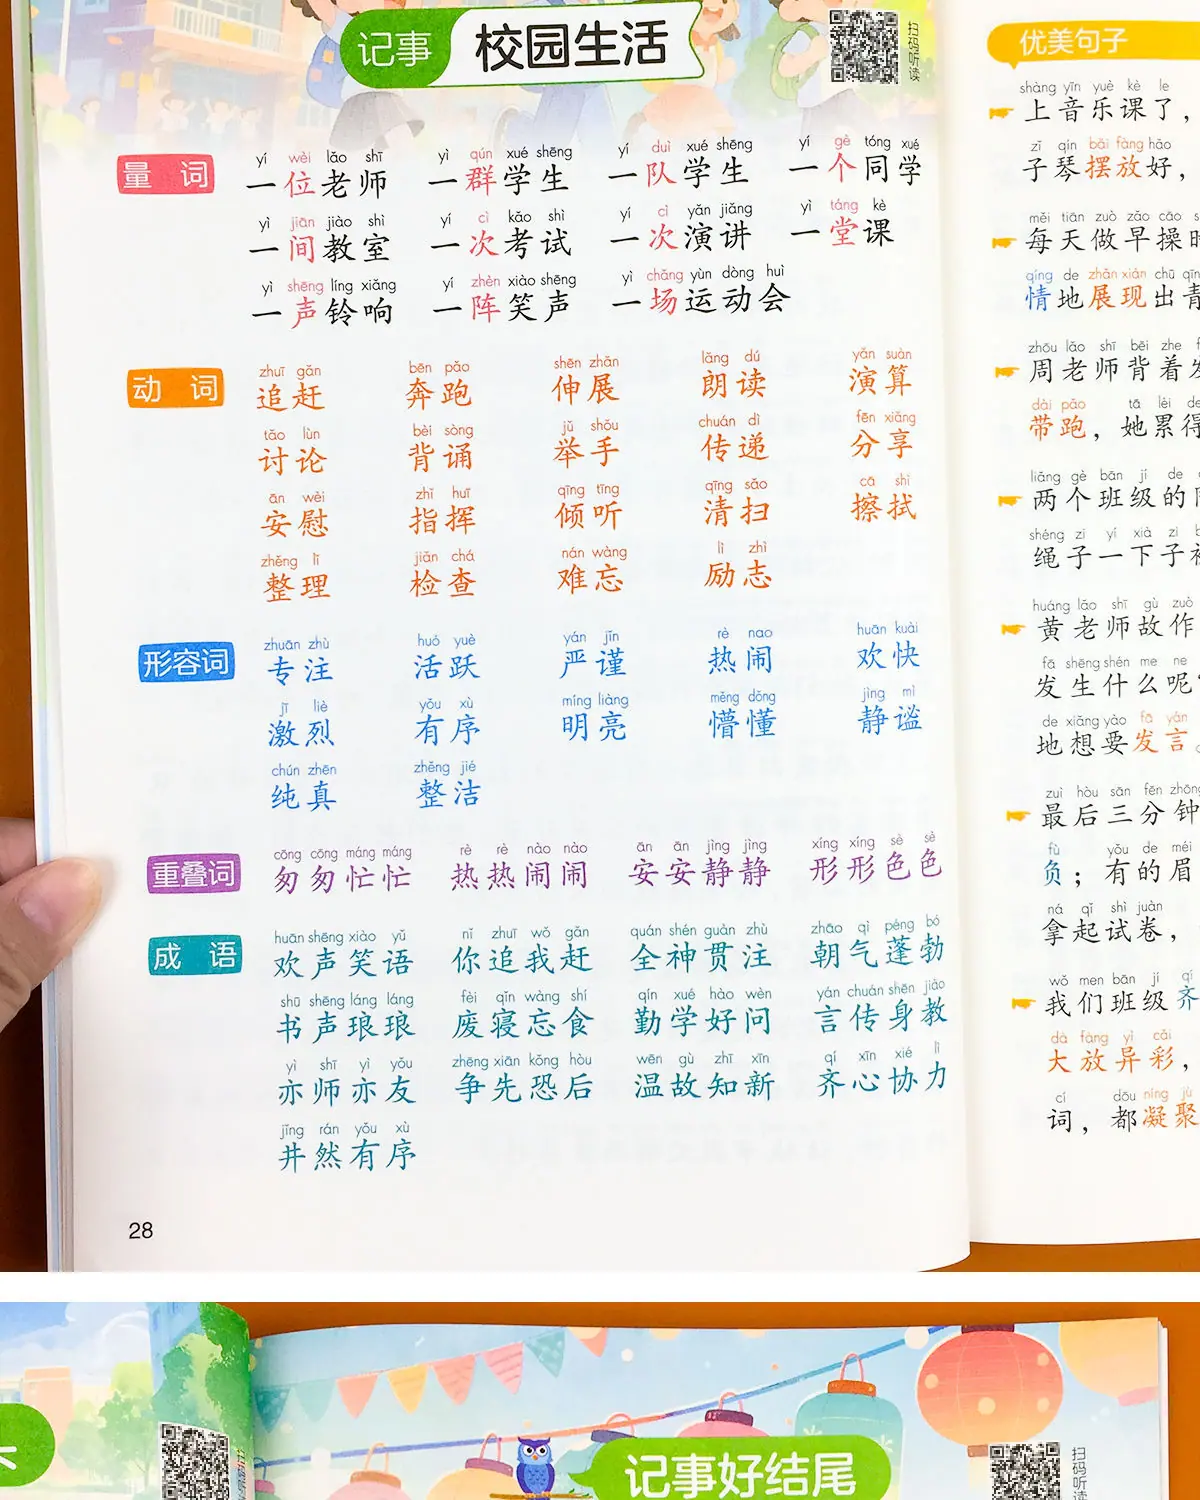 记事 校园生活
扫码听读
量词
yí wèi lǎo shī yì qún xué shēng yí duì xué shēng yí gè tóng xué
一位老师 一群学生 一队学生 一个同学
yì jiān jiào shì yí cì kǎo shì yí cì yǎn jiǎng yì táng kè
一间教室 一次考试 一次演讲 一堂课
yì shēng líng xiǎng yí zhèn xiào shēng yì chǎng yùn dòng huì
一声铃响 一阵笑声 一场运动会
动词
zhuī gǎn bēn pǎo shēn zhǎn lǎng dú yǎn suàn
追赶 奔跑 伸展 朗读 演算
tǎo lùn bèi sòng jǔ shǒu chuán dì fēn xiǎng
讨论 背诵 举手 传递 分享
ān wèi zhǐ huī qīng tīng qīng sǎo cā shì
安慰 指挥 倾听 清扫 擦拭
zhěng lǐ jiǎn chá nán wàng lì zhì
整理 检查 难忘 励志
形容词
zhuān zhù huó yuè yán jǐn rè nao huān kuài
专注 活跃 严谨 热闹 欢快
jī liè yǒu xù míng liàng měng dǒng jìng mì
激烈 有序 明亮 懵懂 静谧
chún zhēn zhěng jié
纯真 整洁
重叠词
cōng cōng máng máng rè rè nào nào ān ān jìng jìng xíng xíng sè sè
匆匆忙忙 热热闹闹 安安静静 形形色色
成语
huān shēng xiào yǔ nǐ zhuī wǒ gǎn quán shén guàn zhù zhāo qì péng bó
欢声笑语 你追我赶 全神贯注 朝气蓬勃
shū shēng láng láng fèi qǐn wàng shí qín xué hào wèn yán chuán shēn jiào
书声琅琅 废寝忘食 勤学好问 言传身教
yì shī yì yǒu zhēng xiān kǒng hòu wēn gù zhī xīn qí xīn xié lì
亦师亦友 争先恐后 温故知新 齐心协力
jǐng rán yǒu xù
井然有序
28
优美句子
shàng yīn yuè kè le
上音乐课了，
zǐ qín bǎi fàng hǎo
子琴摆放好，
měi tiān zuò zǎo cāo
每天做早操时
qíng de zhǎn xiàn chū
情地展现出青
zhōu lǎo shī bēi zhe
周老师背着
dài pǎo tā lèi de
带跑，她累得
liǎng gè bān jí de
两个班级的
shéng zi yí xià zi
绳子一下子
huáng lǎo shī gù zuò
黄老师故作
fā shēng shén me ne
发生什么呢
de xiǎng yào fā yán
地想要发言。
zuì hòu sān fēn zhōng
最后三分钟
fù yǒu de méi
负；有的眉
ná qǐ shì juàn
拿起试卷，
wǒ men bān jí qí
我们班级齐
dà fàng yì cǎi
大放异彩，
cí dōu níng jù
词，都凝聚
记事好结尾
扫码听读